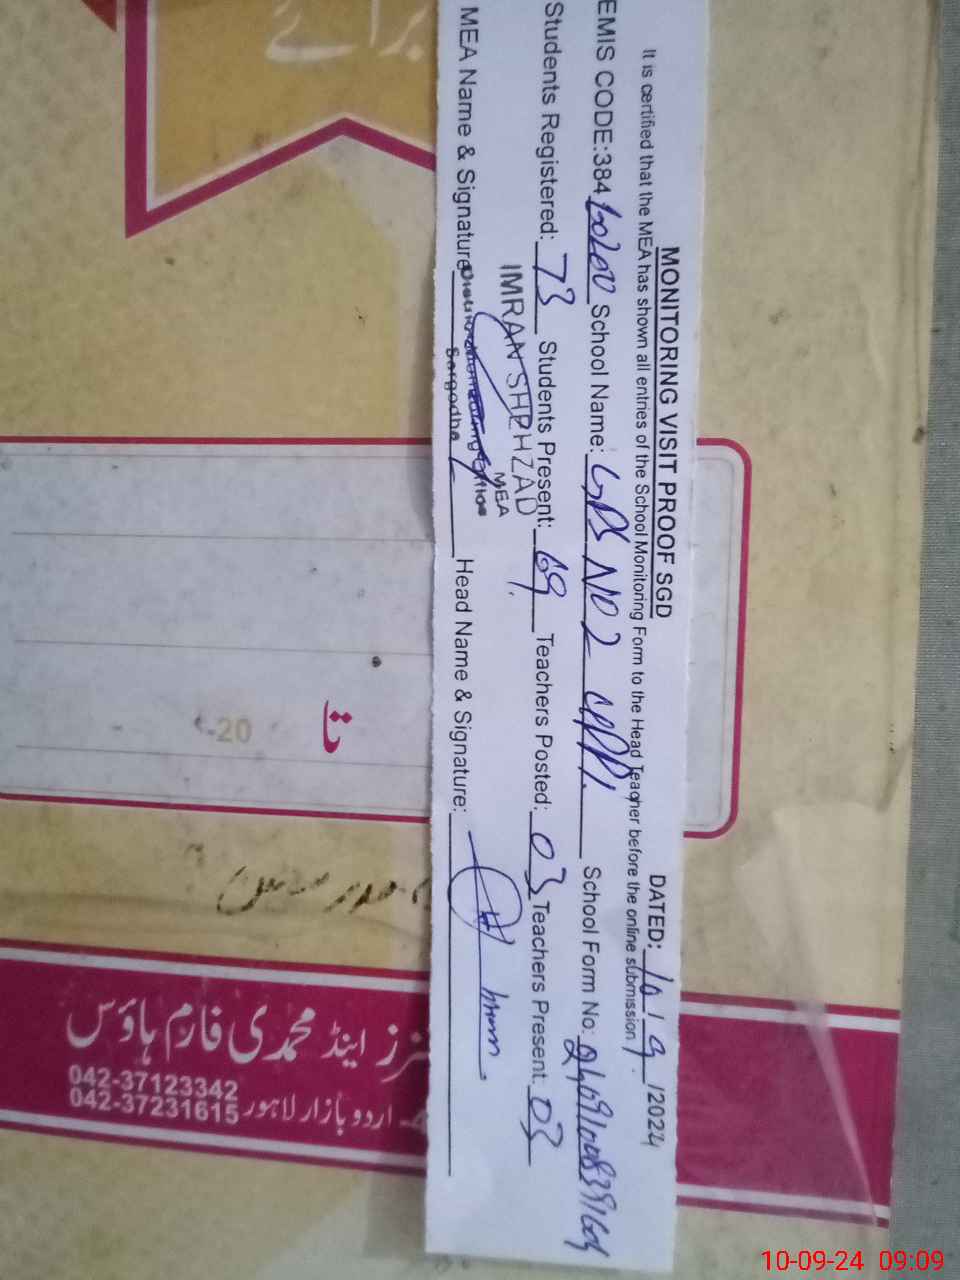 MONITORING VISIT PROOF SGD
DATED: 10/9/2024
It is certified that the MEA has shown all entries of the School Monitoring Form to the Head Teacher before the online submission
EMIS CODE:384 School Name: GPS NO 2 School Form No.
Students Registered: 73 Students Present: 69 Teachers Posted: 03 Teachers Present. 03
IMRAN SHEHZAD
MEA
MEA Name & Signature Head Name & Signature:
Sargodha
برائے
-20
اینڈ محمدی فارم ہاؤس
042-37123342
اردو بازار لاہور 042-37231615
10-09-24 09:09